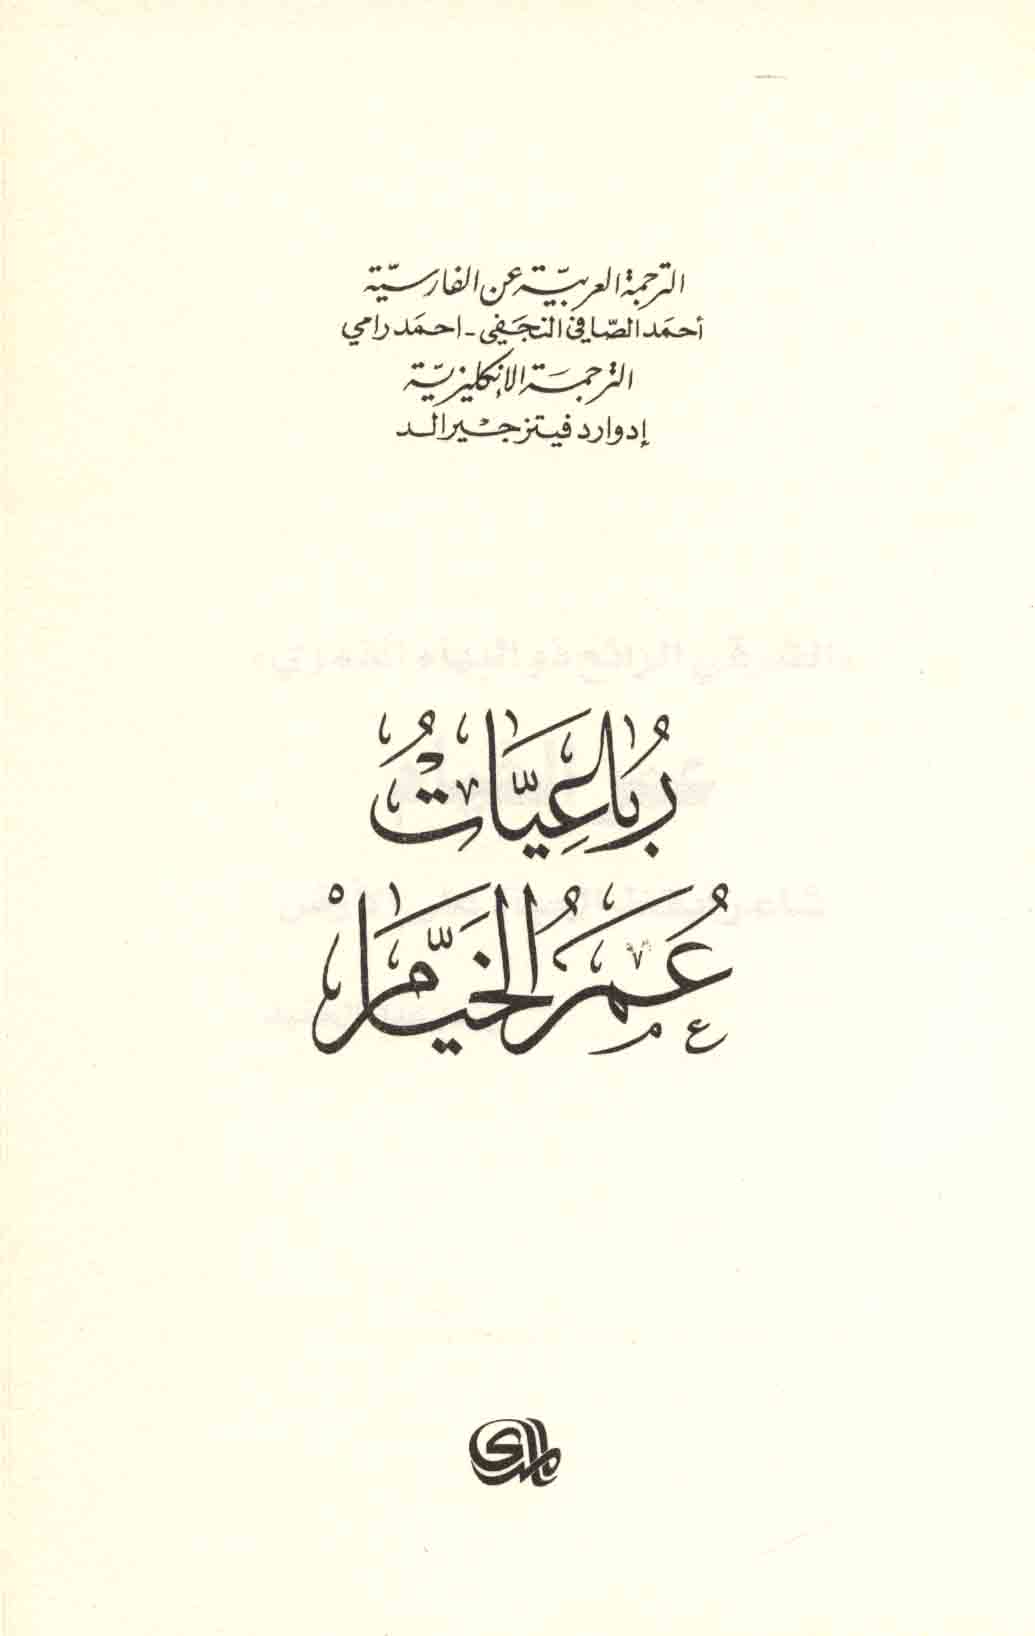 الترجمة العربيّة عن الفارسيّة
أحمَد الصّافي النجَفي - احمَد رامي
الترجمَة الإنكليزيّة
إدوارد فيتزجيرالد
رُبَاعِيَّاتُ
عُمَرُ الخَيَّامْ